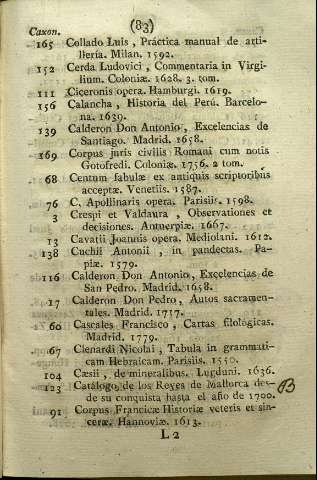 (83)
Caxon.
165 Collado Luis , Práctica manual de arti-
llería. Milan. 1592.
152 Cerda Ludovici , Commentaria in Virgi-
lium. Coloniæ. 1628. 3. tom.
111 Ciceronis opera. Hamburgi. 1619.
156 Calancha , Historia del Perú. Barcelo-
na. 1639.
139 Calderon Don Antonio , Excelencias de
Santiago. Madrid. 1658.
169 Corpus juris civilis Romani cum notis
Gotofredi. Coloniæ. 1756. 2 tom.
68 Centum fabulæ ex antiquis scriptoribus
acceptæ. Venetiis. 1587.
76 C. Apollinaris opera. Parisiis. 1598.
3 Crespi et Valdaura , Observationes et
decisiones. Antuerpiæ. 1667.
13 Cavatii Joannis opera. Mediolani. 1612.
138 Cuchii Antonii , in pandectas. Pa-
piæ. 1579.
116 Calderon Don Antonio, Excelencias de
San Pedro. Madrid. 1658.
17 Calderon Don Pedro, Autos sacramen-
tales. Madrid. 1717.
60 Cascales Francisco , Cartas filologicas.
Madrid. 1779.
67 Clenardi Nicolai , Tabula in grammati-
cam Hebraicam. Parisiis. 1550.
104 Cæsii , de mineralibus. Lugduni. 1636.
123 Catálogo de los Reyes de Mallorca des-
de su conquista hasta el año de 1700.
91 Corpus Francicæ Historiæ veteris et sin-
ceræ. Hannoviæ. 1613.
L 2